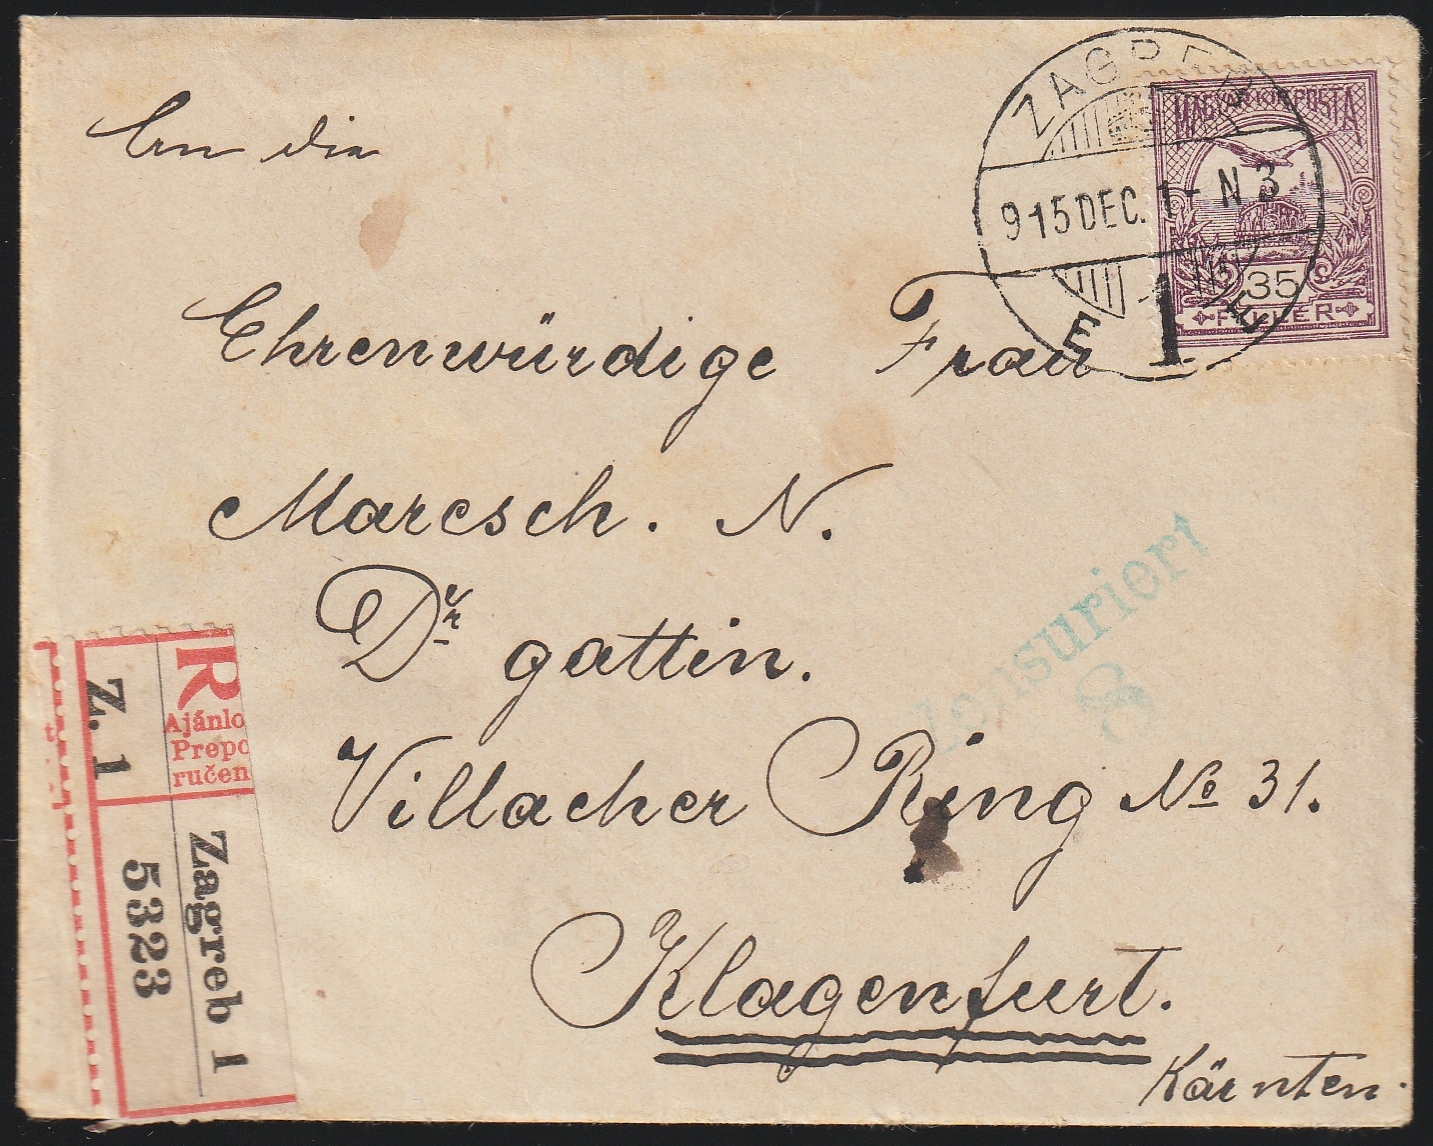 An die
Ehrenwürdige Frau
Maresch. N.
Dr gattin.
Villacher Ring No 31.
Klagenfurt.
Kärnten.
ZAGREB
915 DEC. 1 - N 3
E 1 E
1
MAGYAR KIR. POSTA
35
FILLÉR
Zensuriert
8
R
Ajánlo
Prepo
ručen
Z. 1
Zagreb 1
5323